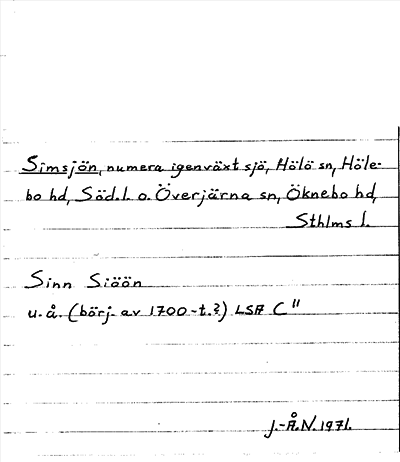 Simsjön, numera igenväxt sjö, Hölö sn, Höle-
bo hd, Söd.l. o. Överjärna sn, Öknebo hd,
Sthlms l.
Sinn Siöön
u. å. (börj. av 1700-t.?) LSA C"
J.-Å.N. 1971.